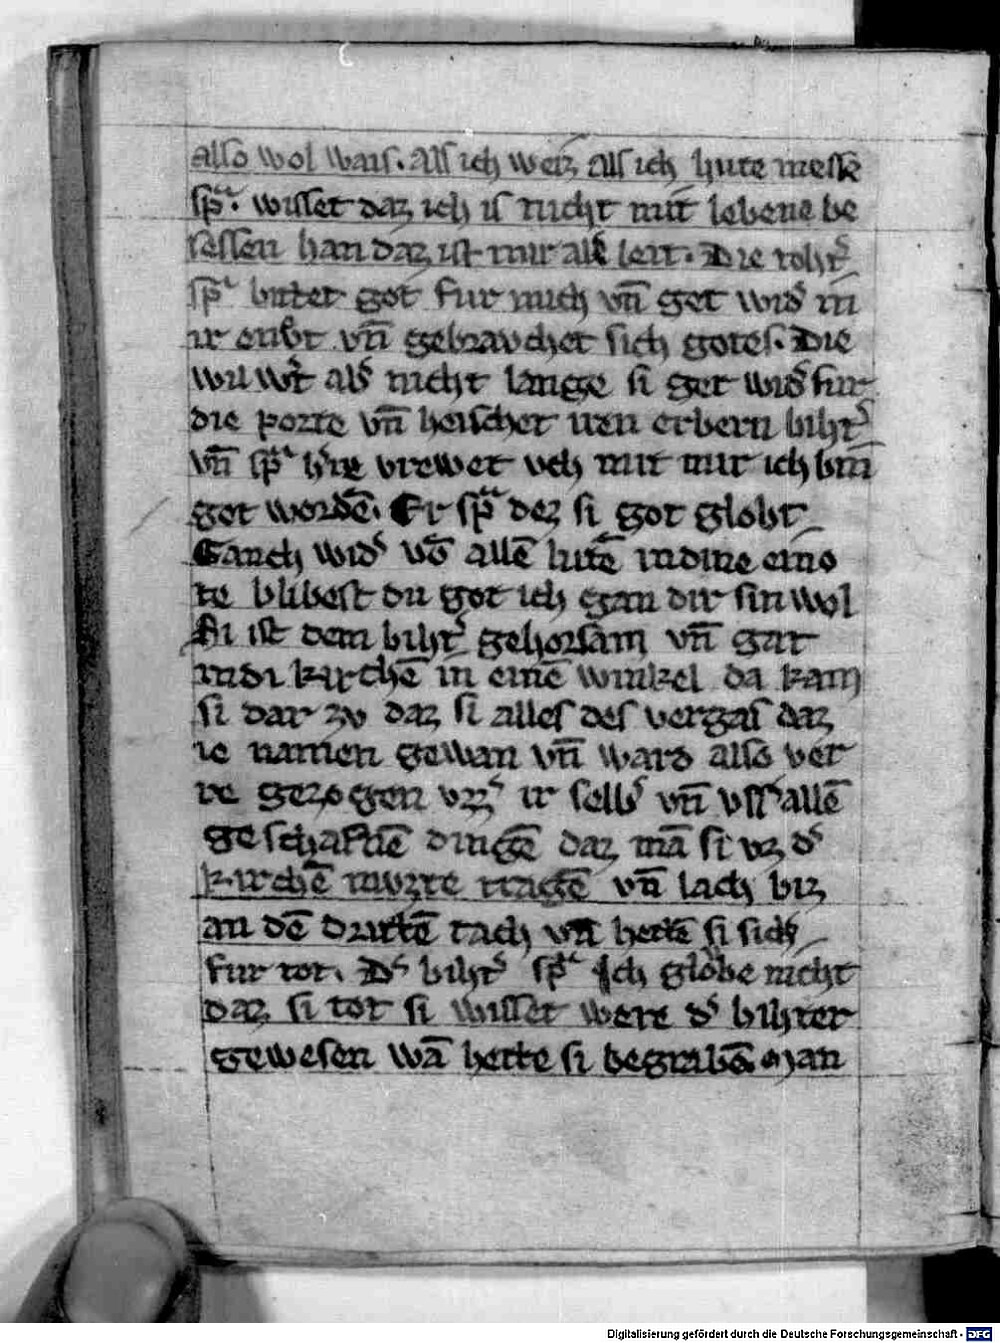 also wol wais. als ich weiz als ich hute messe
spͣ. wisset daz ich is nicht mit lebene be
sessen han daz ist mir als leit. Die tohtˢ
spͣ bittet got fur mich vn̄ get widˢ in
ir vn̄ gebravchet sich gotes. Die
wil wˢt abˢ nicht lange si get widˢ fur
die porte vn̄ heischet iren erbern bihtˢ
vn̄ spͣ hˢre vrewet vch mit mir ich bin
got wordē. Er spͣ dez si got globt
Ganch widˢ vō allē lutē in dine eino
te blibest du got ich gan dir sin wol
Si ist dem bihtˢ gehorsam vn̄ gat
in di kirchē in einē winkel da kam
si dar zv daz si alles des vergas daz
ie namen gewan vn̄ ward also ver
re gezogen vzzˢ ir selbˢ vn̄ vssˢ allē
geschaffnē dingē daz mā si vz dˢ
kirchē mvzte tragē vn̄ lach biz
an dē drittē tach vn̄ hettē si sich
fur tot. Dˢ bihtˢ spͣ Ich globe nicht
daz si tot si wisset were dˢ bihter
gewesen wā hette si begrabē. Man
Digitalisierung gefördert durch die Deutsche Forschungsgemeinschaft - DFG